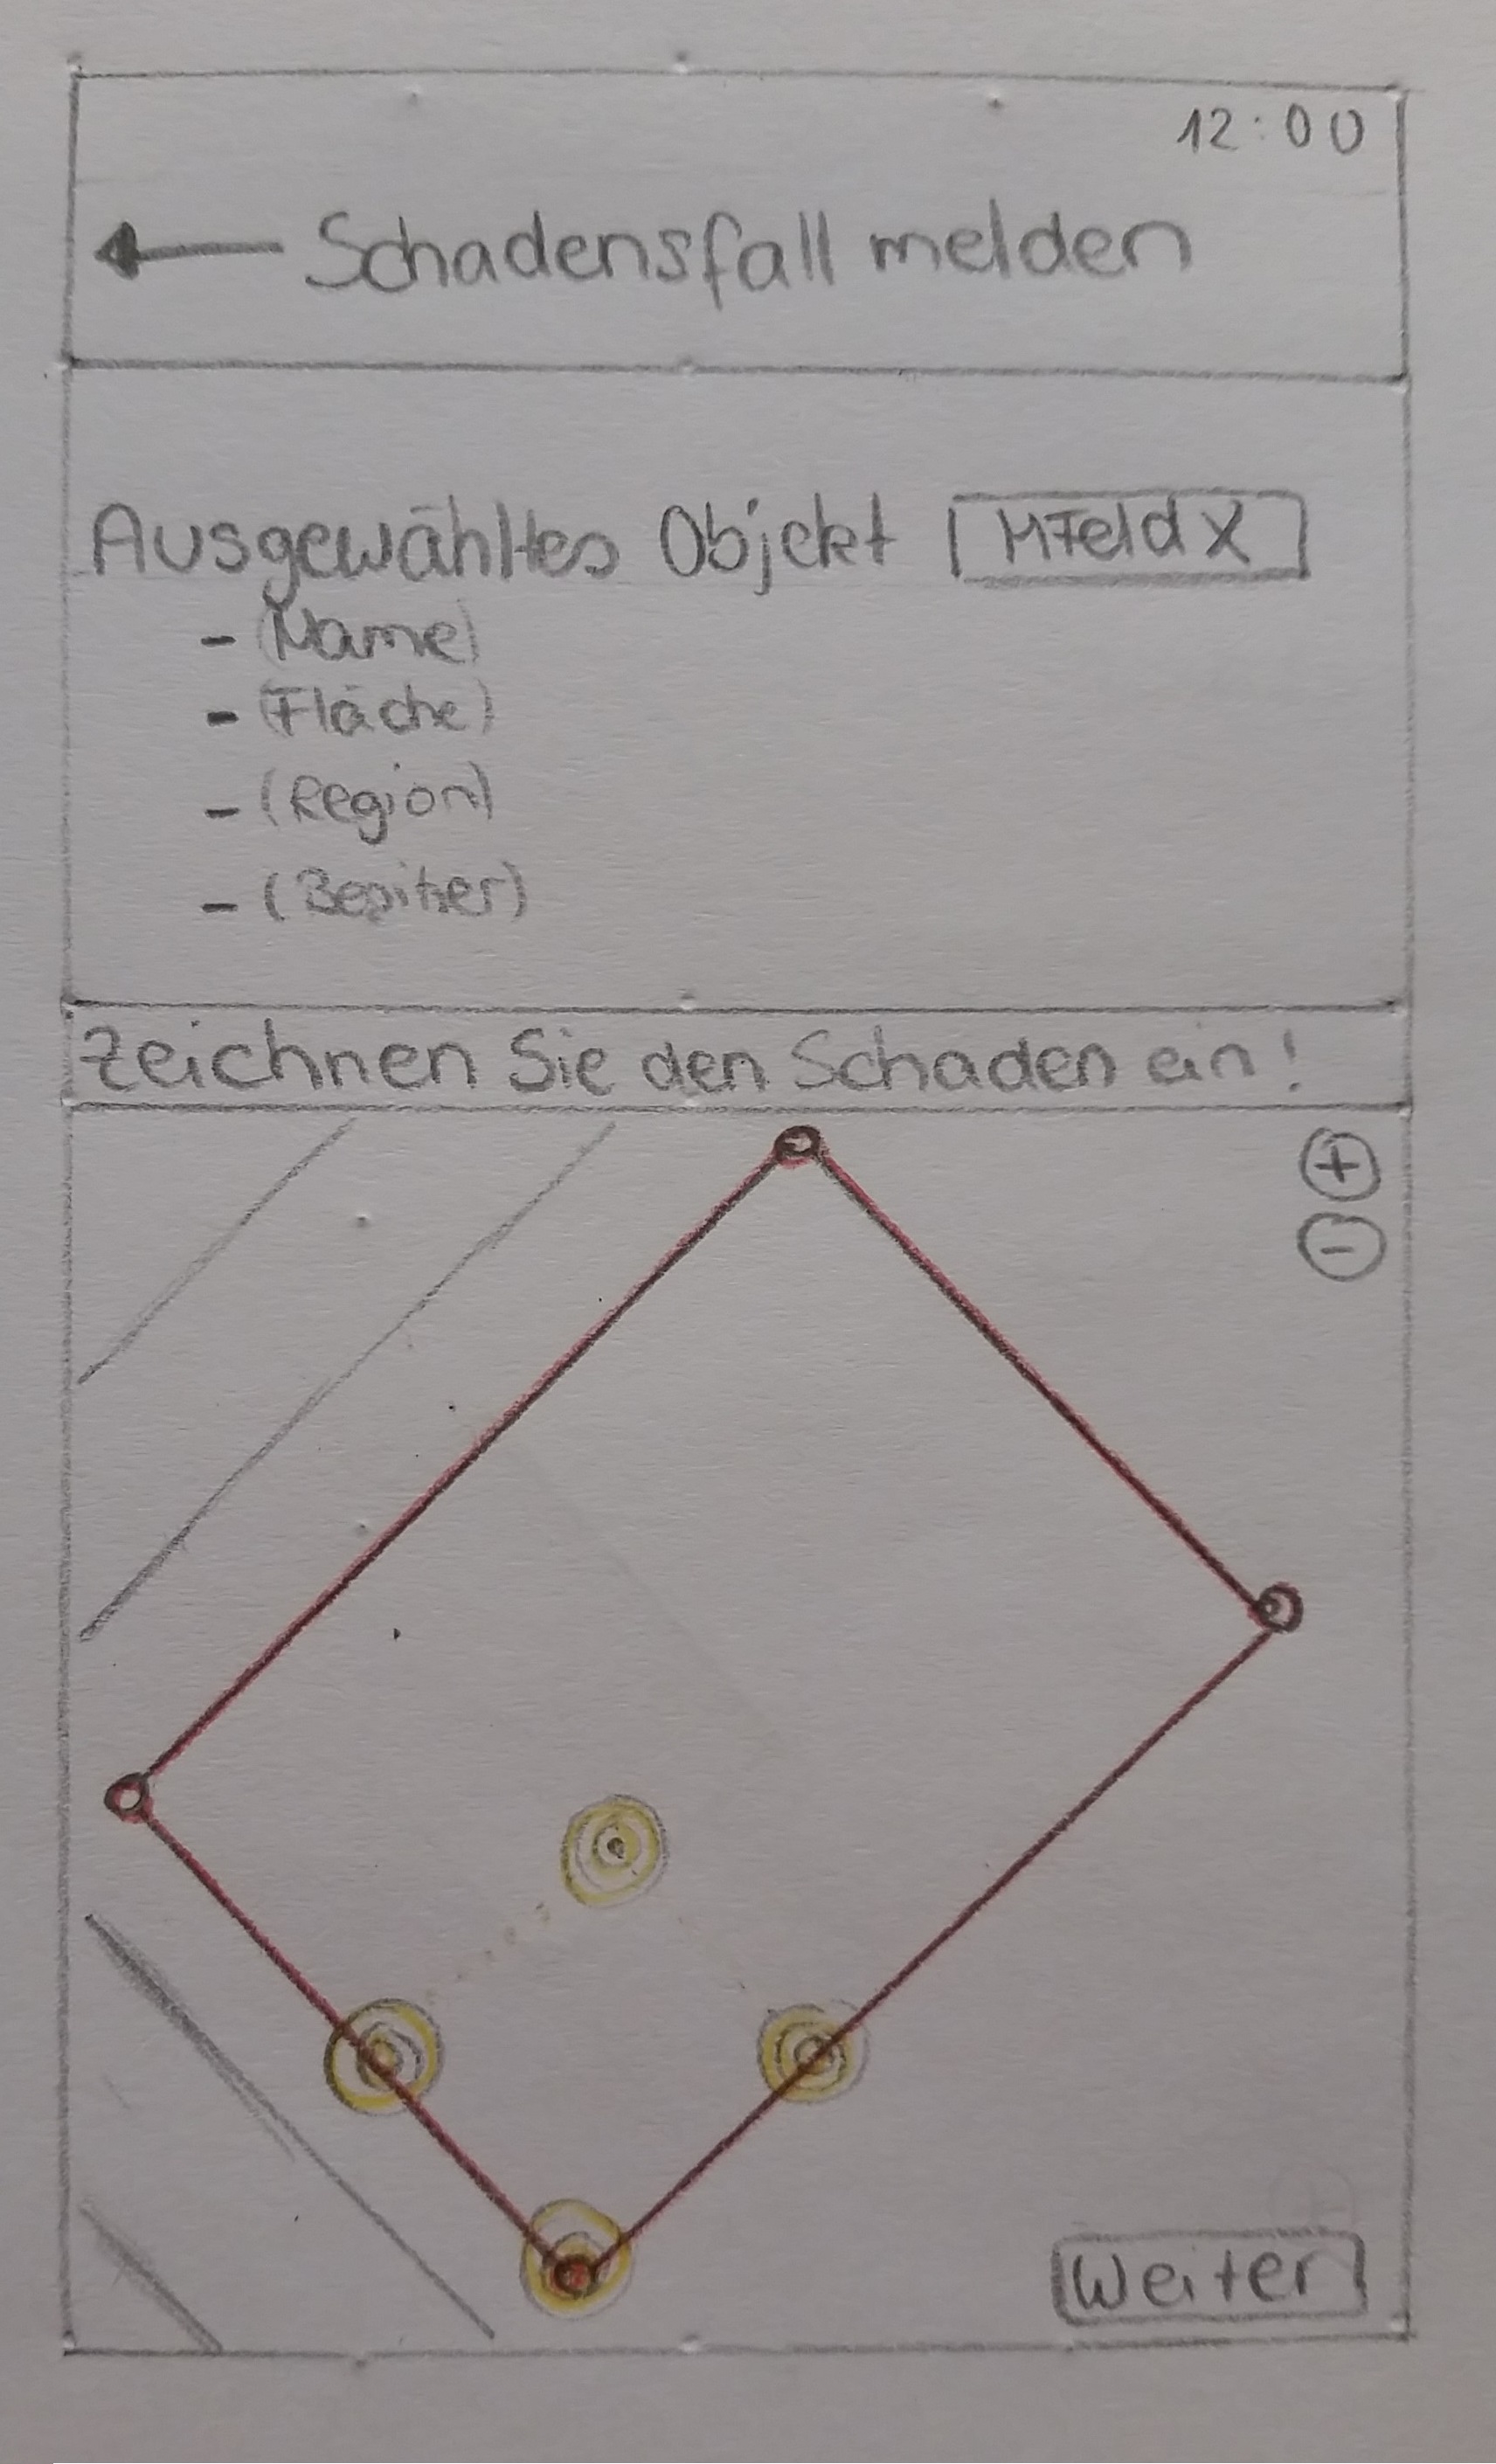 12:00
← Schadensfall melden
Ausgewähltes Objekt MFeld X
- (Name)
- (Fläche)
- (Region)
- (Besitzer)
Zeichnen Sie den Schaden ein!
+
-
Weiter